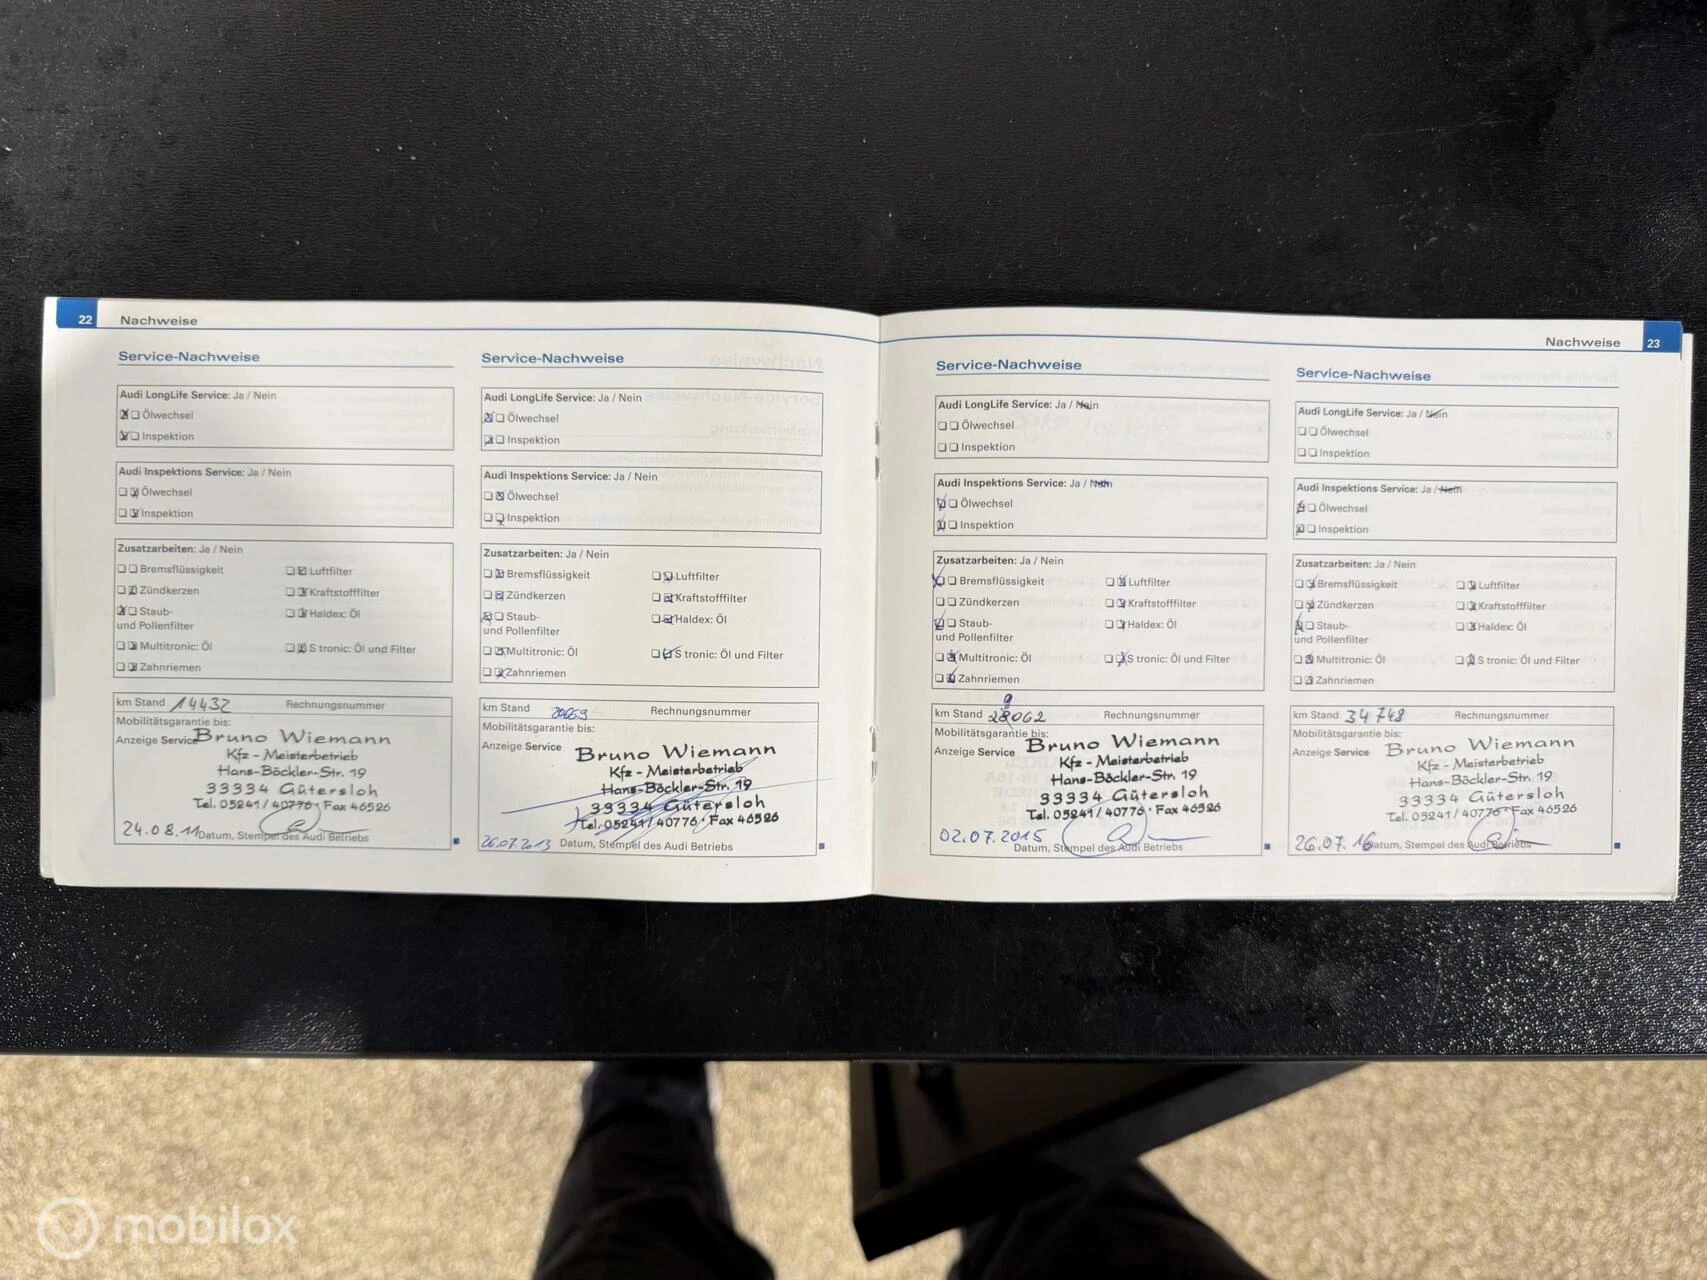 22 Nachweise
Service-Nachweise
Audi LongLife Service: Ja / Nein
Ölwechsel
Inspektion
Audi Inspektions Service: Ja / Nein
Ölwechsel
Inspektion
Zusatzarbeiten: Ja / Nein
Bremsflüssigkeit Luftfilter
Zündkerzen Kraftstofffilter
Staub- Haldex: Öl
und Pollenfilter
Multitronic: Öl S tronic: Öl und Filter
Zahnriemen
km Stand 14432 Rechnungsnummer
Mobilitätsgarantie bis:
Anzeige Service
Bruno Wiemann
Kfz - Meisterbetrieb
Hans-Böckler-Str. 19
33334 Gütersloh
Tel. 05241/40776 · Fax 46526
24.08.11 Datum, Stempel des Audi Betriebs
Service-Nachweise
Audi LongLife Service: Ja / Nein
Ölwechsel
Inspektion
Audi Inspektions Service: Ja / Nein
Ölwechsel
Inspektion
Zusatzarbeiten: Ja / Nein
Bremsflüssigkeit Luftfilter
Zündkerzen Kraftstofffilter
Staub- Haldex: Öl
und Pollenfilter
Multitronic: Öl S tronic: Öl und Filter
Zahnriemen
km Stand Rechnungsnummer
Mobilitätsgarantie bis:
Anzeige Service
Bruno Wiemann
Kfz - Meisterbetrieb
Hans-Böckler-Str. 19
33334 Gütersloh
Tel. 05241/40776 · Fax 46526
26.07.2013 Datum, Stempel des Audi Betriebs
Nachweise 23
Service-Nachweise
Audi LongLife Service: Ja / Nein
Ölwechsel
Inspektion
Audi Inspektions Service: Ja / Nein
Ölwechsel
Inspektion
Zusatzarbeiten: Ja / Nein
Bremsflüssigkeit Luftfilter
Zündkerzen Kraftstofffilter
Staub- Haldex: Öl
und Pollenfilter
Multitronic: Öl S tronic: Öl und Filter
Zahnriemen
9
km Stand 28062 Rechnungsnummer
Mobilitätsgarantie bis:
Anzeige Service
Bruno Wiemann
Kfz - Meisterbetrieb
Hans-Böckler-Str. 19
33334 Gütersloh
Tel. 05241/40776 · Fax 46526
02.07.2015
Datum, Stempel des Audi Betriebs
Service-Nachweise
Audi LongLife Service: Ja / Nein
Ölwechsel
Inspektion
Audi Inspektions Service: Ja / Nein
Ölwechsel
Inspektion
Zusatzarbeiten: Ja / Nein
Bremsflüssigkeit Luftfilter
Zündkerzen Kraftstofffilter
Staub- Haldex: Öl
und Pollenfilter
Multitronic: Öl S tronic: Öl und Filter
Zahnriemen
km Stand 34748 Rechnungsnummer
Mobilitätsgarantie bis:
Anzeige Service
Bruno Wiemann
Kfz - Meisterbetrieb
Hans-Böckler-Str. 19
33334 Gütersloh
Tel. 05241/40776 · Fax 46526
26.07.16 Datum, Stempel des Audi Betriebs
mobilox